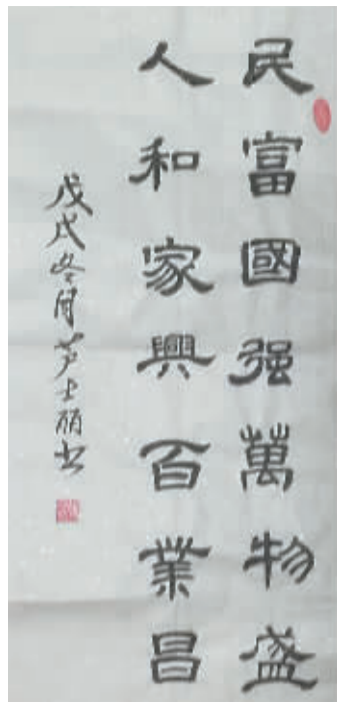 民富國強萬物盛
人和家興百業昌
戊戌冬月芦士丽书